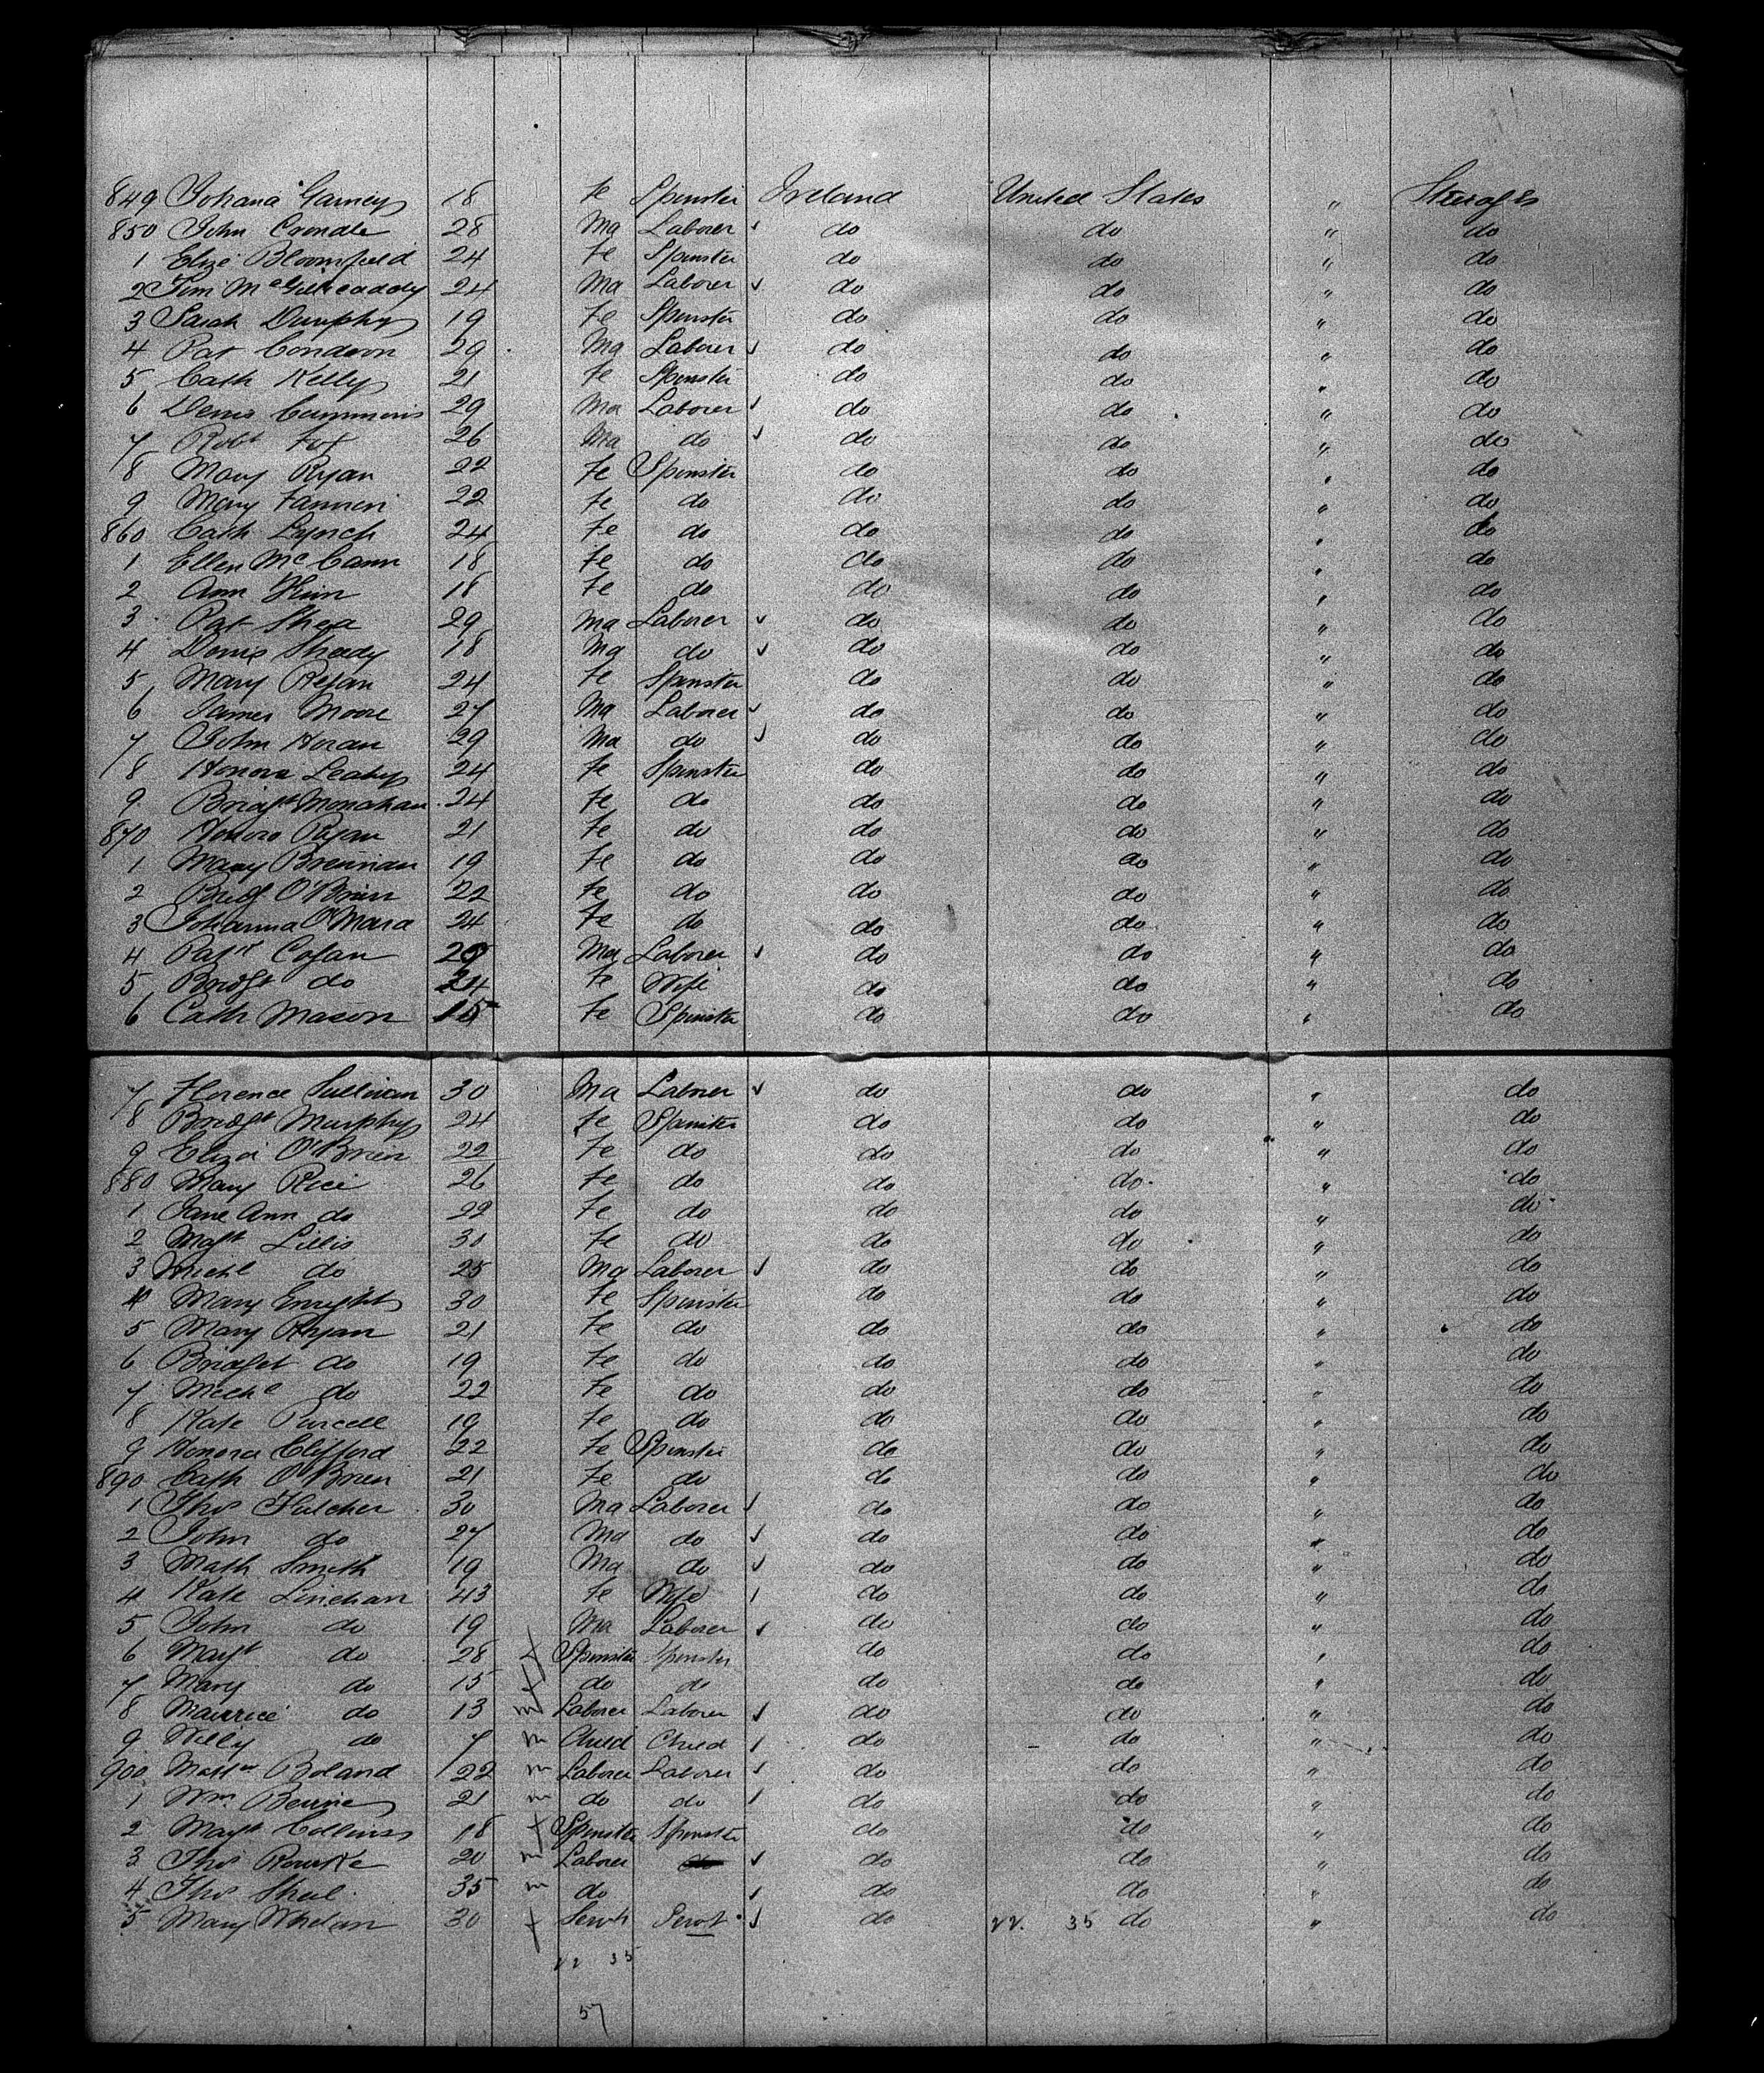 849 Johana 18 fe Spinster Ireland United States " Steerage
850 John Crendle 28 Ma Laborer do do " do
1 Eliza Bloomfield 24 fe Spinster do do " do
2 Tim 24 Ma Laborer do do " do
3 Sarah Dunphy 19 fe Spinster do do " do
4 Pat Condron 29 Ma Laborer do do " do
5 Cath Kelly 21 fe Spinster do do " do
6 Denis Cummins 29 Ma Laborer do do " do
7 Robt Fox 26 Ma do do do " do
8 Mary Ryan 22 fe Spinster do do " do
9 Mary Fannin 22 fe do do do " do
860 Cath Lynch 24 fe do do do " do
1 Ellen McCann 18 fe do do do " do
2 Ann 18 fe do do do " do
3 Pat Shea 29 Ma Laborer do do " do
4 Denis Sheedy 18 Ma do do do " do
5 Mary Regan 24 fe Spinster do do " do
6 James Moore 27 Ma Laborer do do " do
7 John Horan 29 Ma do do do " do
8 Honora Leahy 24 fe Spinster do do " do
9 Bridgt Monahan 24 fe do do do " do
870 Ryan 21 fe do do do " do
1 Mary Brennan 19 fe do do do " do
2 Bridg O'Brien 22 fe do do do " do
3 Johanna O'Mara 24 fe do do do " do
4 Patk Cogan 29 Ma Laborer do do " do
5 Bridgt do 24 fe Wife do do " do
6 Cath Mason 15 fe Spinster do do " do
7 Florence Sullivan 30 Ma Laborer do do " do
8 Bridgt Murphy 24 fe Spinster do do " do
9 Eliza O'Brien 22 fe do do do " do
880 Mary Rice 26 fe do do do " do
1 Jane Ann do 22 fe do do do " do
2 Magt Lillis 30 fe do do do " do
3 Michl do 25 Ma Laborer do do " do
4 Mary Enright 30 fe Spinster do do " do
5 Mary Ryan 21 fe do do do " do
6 Bridget do 19 fe do do do " do
7 Michl do 22 fe do do do " do
8 Kate Purcell 19 fe do do do " do
9 Honora Clifford 22 fe Spinster do do " do
890 Cath O'Brien 21 fe do do do " do
1 Thos Fulcher 30 Ma Laborer do do " do
2 John do 27 Ma do do do " do
3 Math Smith 19 Ma do do do " do
4 Kate Linehan 43 fe Wife do do " do
5 John do 19 Ma Laborer do do " do
6 Magt do 28 f Spinster Spinster do do " do
7 Mary do 15 f do do do do " do
8 Maurice do 13 m Laborer Laborer do do " do
9 Willy do 7 m Child Child do do " do
900 Mattw Boland 22 m Laborer Laborer do do " do
1 Wm. Beirne 21 m do do do do " do
2 Magt Collins 18 f Spinster Spinster do do " do
3 Thos Rourke 20 m Laborer do do do " do
4 Thos Sheil 35 m do do do " do
5 Mary Whelan 30 f Servt Servt do 22. 35 do " do
22 35
57